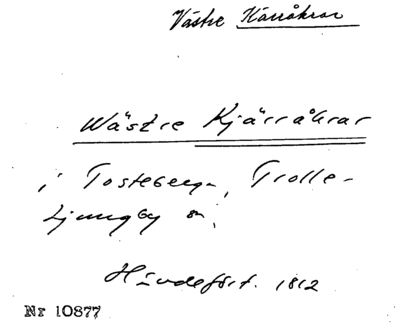 Västre Kärråkrar
Wästre Kjärråkrar
i Tosteberga, Trolle-
Ljungby sn.
Händefört. 1812
Nr 10877